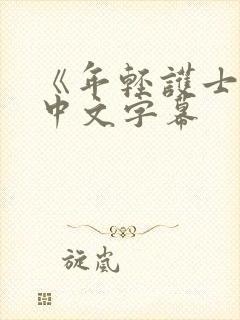 《年轻護士
中文字幕
旋嵐